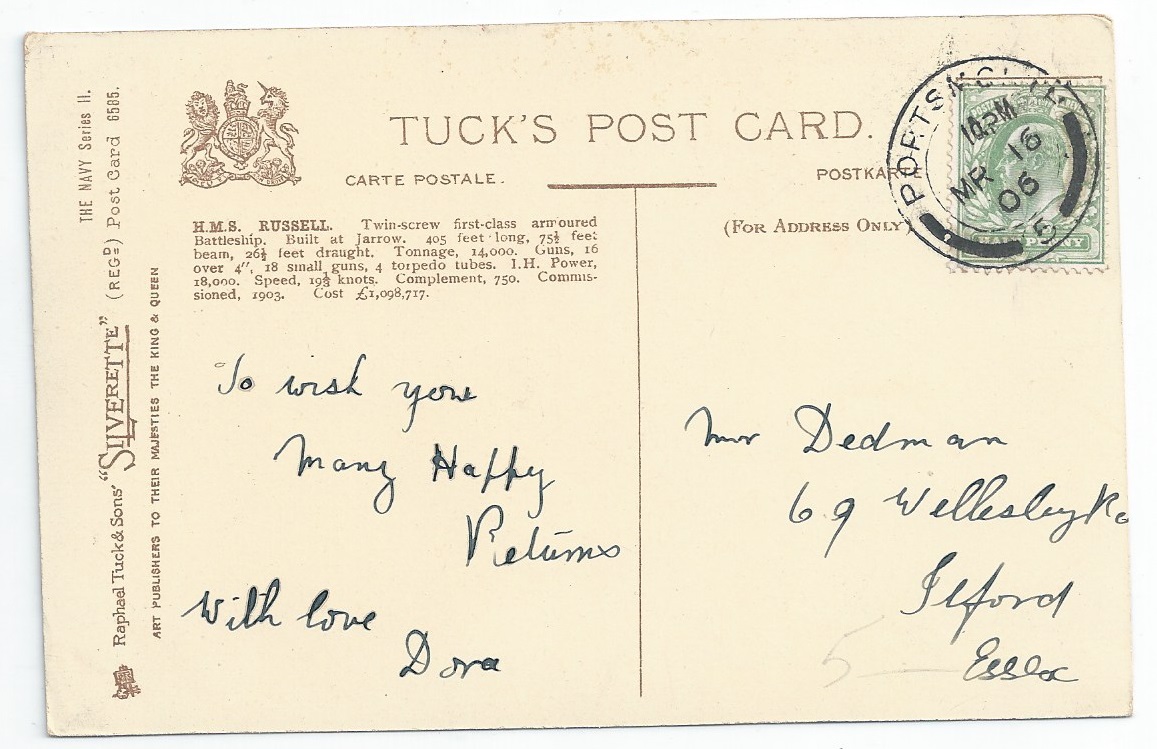 THE NAVY Series II.
Raphael Tuck & Sons' "SILVERETTE" (REGD) Post Card 6585.
ART PUBLISHERS TO THEIR MAJESTIES THE KING & QUEEN
TUCK'S POST CARD.
CARTE POSTALE.
POSTKARTE
H.M.S. RUSSELL. Twin-screw first-class armoured
Battleship. Built at Jarrow. 405 feet long, 75½ feet
beam, 26½ feet draught. Tonnage, 14,000. Guns, 16
over 4", 18 small guns, 4 torpedo tubes. I.H. Power,
18,000. Speed, 19½ knots. Complement, 750. Commis-
sioned, 1903. Cost £1,098,717.
To wish you
Many Happy
Returns
With love
Dora
(For Address Only)
PORTSMOUTH
MR 16
06
5
HALFPENNY
Mr Dedman
69 Wellesley Ro
Ilford
Essex
5